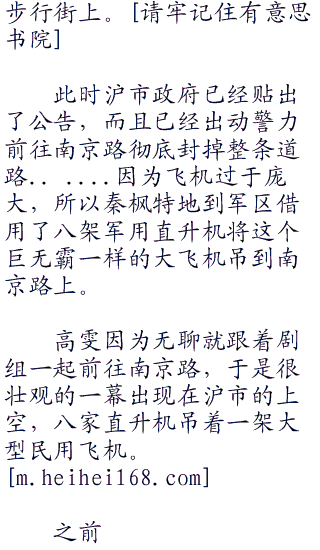 步行街上。[请牢记住有意思
书院]
此时沪市政府已经贴出
了公告，而且已经出动警力
前往南京路彻底封掉整条道
路.. ....因为飞机过于庞
大，所以秦枫特地到军区借
用了八架军用直升机将这个
巨无霸一样的大飞机吊到南
京路上。
高雯因为无聊就跟着剧
组一起前往南京路，于是很
壮观的一幕出现在沪市的上
空，八家直升机吊着一架大
型民用飞机。
[m.heihei168.com]
之前